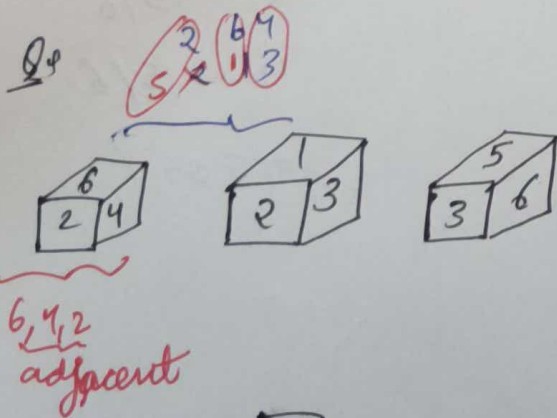 Q9
2 6 4
5 2 1 3
6 2 4
1 2 3
5 3 6
6, 4, 2
adjacent